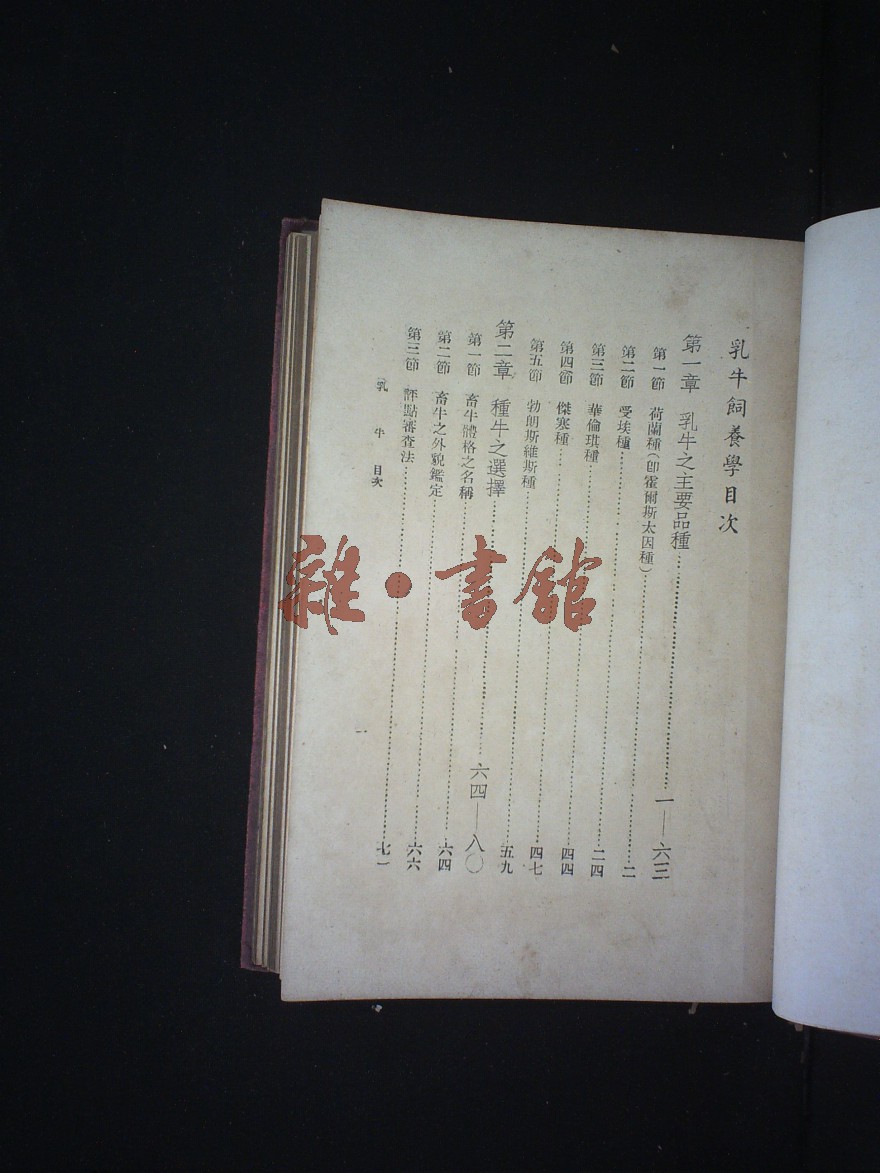 乳牛飼養學目次
第一章 乳牛之主要品種……一—六三
第一節 荷蘭種(卽霍爾斯太因種)……二
第二節 受埃種……二四
第三節 華倫琪種……四四
第四節 傑塞種……四七
第五節 勃朗斯維斯種……五九
第二章 種牛之選擇……六四—八〇
第一節 畜牛體格之名稱……六四
第二節 畜牛之外貌鑑定……六六
第三節 評點審查法……七一
乳牛 目次 一
雜·書館